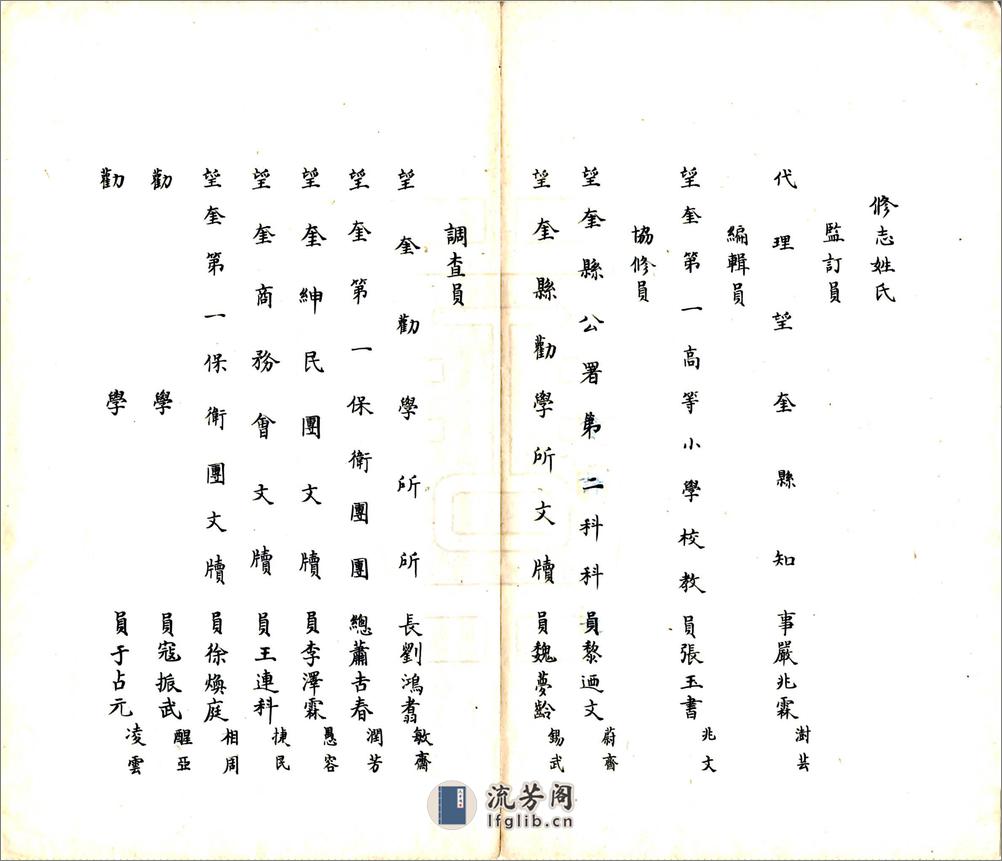 修志姓氏
監訂員
代理望奎縣知事嚴兆霖澍芸
編輯員
望奎第一高等小學校教員張玉書兆文
協修員
望奎縣公署第二科科員黎迺文蔚齋
望奎縣勸學所文牘員魏夢齡錫武
調查員
望奎勸學所所長劉鴻翥敏齋
望奎第一保衛團團總蕭吉春潤芳
望奎紳民團文牘員李澤霖愚容
望奎商務會文牘員王連科捷民
望奎第一保衛團文牘員徐煥庭相周
勸學員寇振武醒亞
勸學員于占元凌雲
流芳阁
lfglib.cn